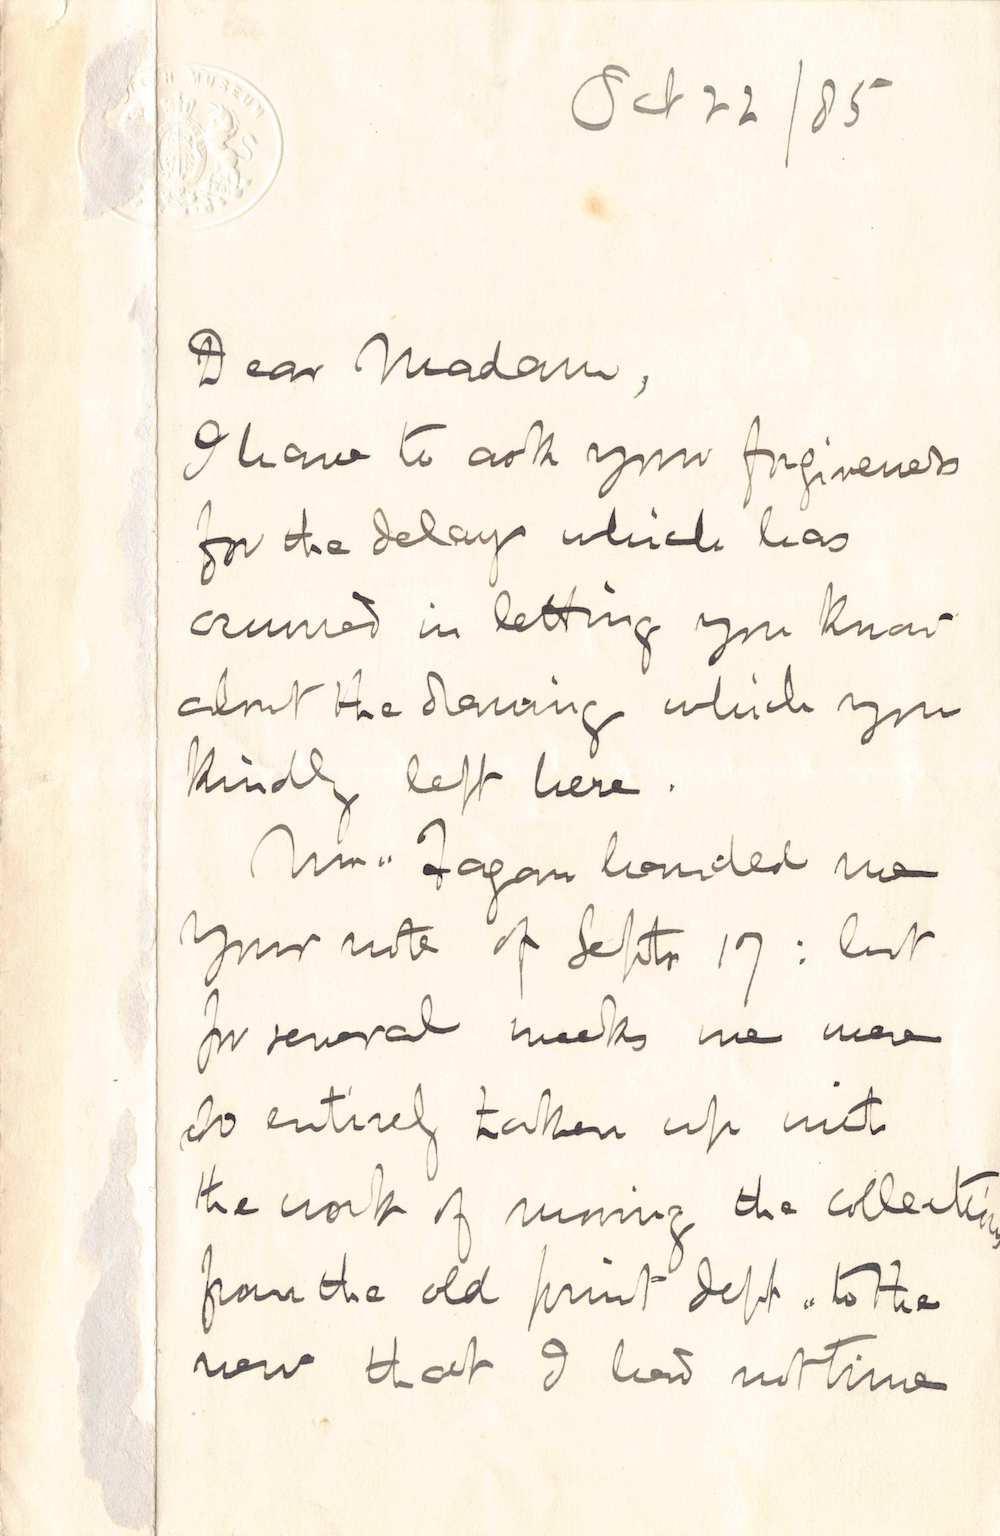 BRITISH MUSEUM
Oct 22/85
Dear Madam,
I have to ask your forgiveness
for the delay which has
occurred in letting you know
about the drawing which you
kindly left here.
Mr. Fagan handed me
your note of Septr 17: but
for several weeks we were
so entirely taken up with
the work of moving the collections
from the old print dept. to the
new that I had not time